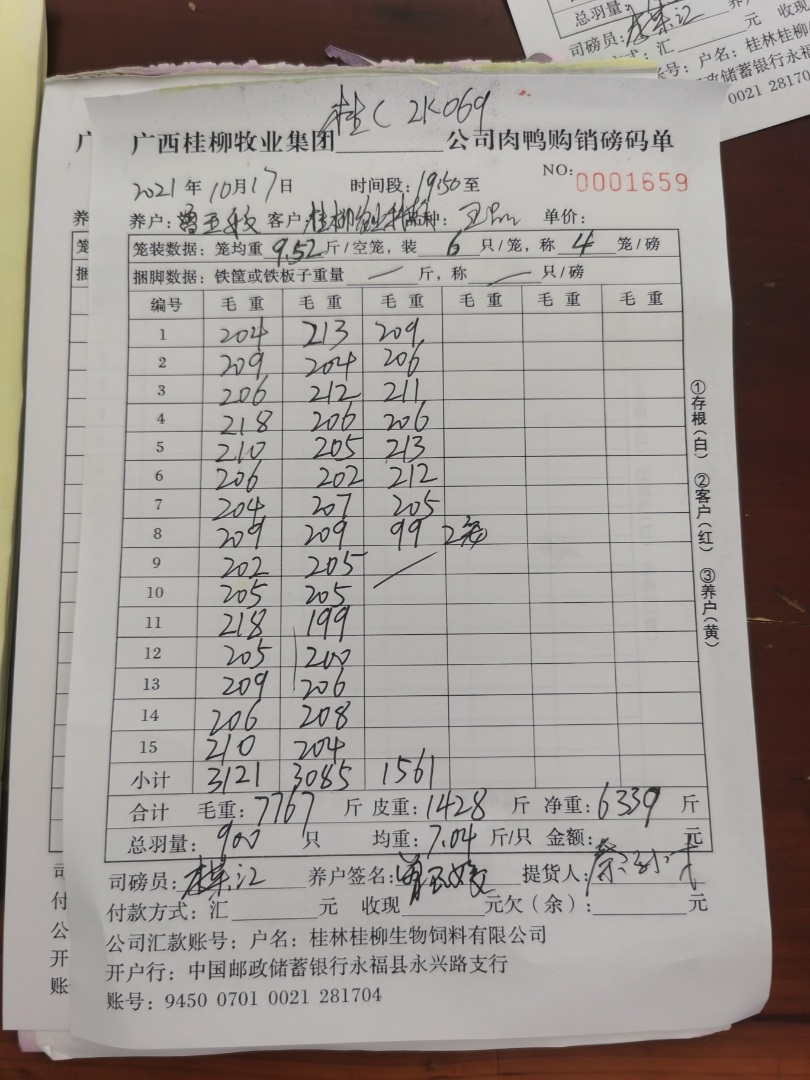 总羽量：
司磅员：
元 收现
账号：户名：桂林桂柳
邮政储蓄银行永福
0021 281704
桂C 2K069
广西桂柳牧业集团 公司肉鸭购销磅码单
NO: 0001659
2021年10月17日 时间段：19:50至
养户： 客户： 品种： 单价：
笼装数据：笼均重 9.52 斤/空笼，装 6 只/笼，称 4 笼/磅
捆脚数据：铁筐或铁板子重量 — 斤，称 — 只/磅
编号 毛重 毛重 毛重 毛重 毛重 毛重
1 204 213 209
2 209 204 206
3 206 212 211
4 218 206 206
5 210 205 213
6 206 202 212
7 204 207 205
8 209 209 99 2笼
9 202 205
10 205 205
11 218 199
12 205 200
13 209 206
14 206 208
15 210 204
小计 3121 3085 1561
合计 毛重：7767 斤 皮重：1428 斤 净重：6339 斤
总羽量：900 只 均重：7.04 斤/只 金额： 元
①存根（白） ②客户（红） ③养户（黄）
司磅员： 养户签名： 提货人：
付款方式：汇 元 收现 元欠（余）： 元
公司汇款账号：户名：桂林桂柳生物饲料有限公司
开户行：中国邮政储蓄银行永福县永兴路支行
账号：9450 0701 0021 281704